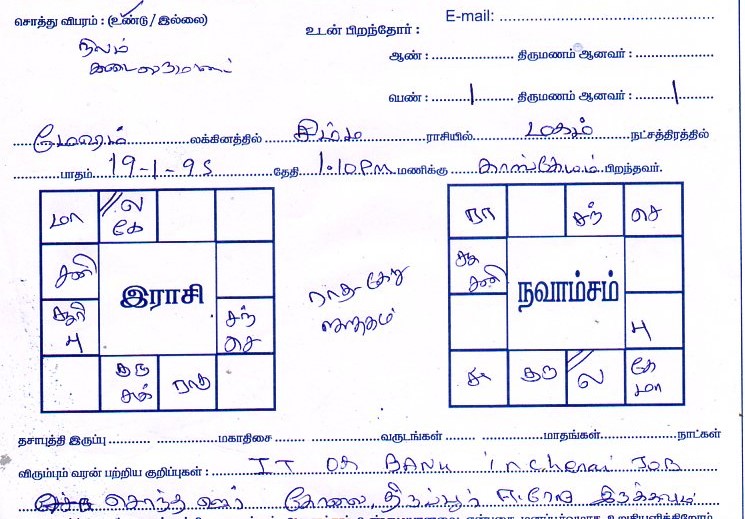 சொத்து விபரம் : (உண்டு / இல்லை)
E-mail:
நிலம்
உடன் பிறந்தோர் :
ஆண் : திருமணம் ஆனவர் :
பெண் : 1 திருமணம் ஆனவர் : 1
மேஷம் லக்கினத்தில் சிம்ம ராசியில் மகம் நட்சத்திரத்தில்
பாதம் 19-1-95 தேதி 1.10 PM மணிக்கு பிறந்தவர்.
மா ல
கே
சனி
சூரி
பு
இராசி
சந்
செ
குரு
சுக்
ராகு
ராகு கேது
ஜாதகம்
ரா சந் செ
சனி
நவாம்சம்
பு
குரு ல கே
மா
தசாபுத்தி இருப்பு மகாதிசை வருடங்கள் மாதங்கள் நாட்கள்
விரும்பும் வரன் பற்றிய குறிப்புகள் : IT OR BANK in Chennai JOB
சொந்த ஊர் கோவை, திருப்பூர் ஈரோடு இருக்கவும்